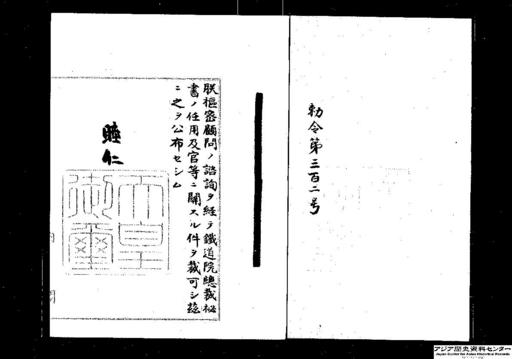 勅令第三百二号
朕樞密顧問ノ諮詢ヲ経テ鐵道院總裁秘
書ノ任用及官等ニ關スル件ヲ裁可シ茲
ニ之ヲ公布セシム
睦仁
天皇御璽
アジア歴史資料センター
Japan Center for Asian Historical Records